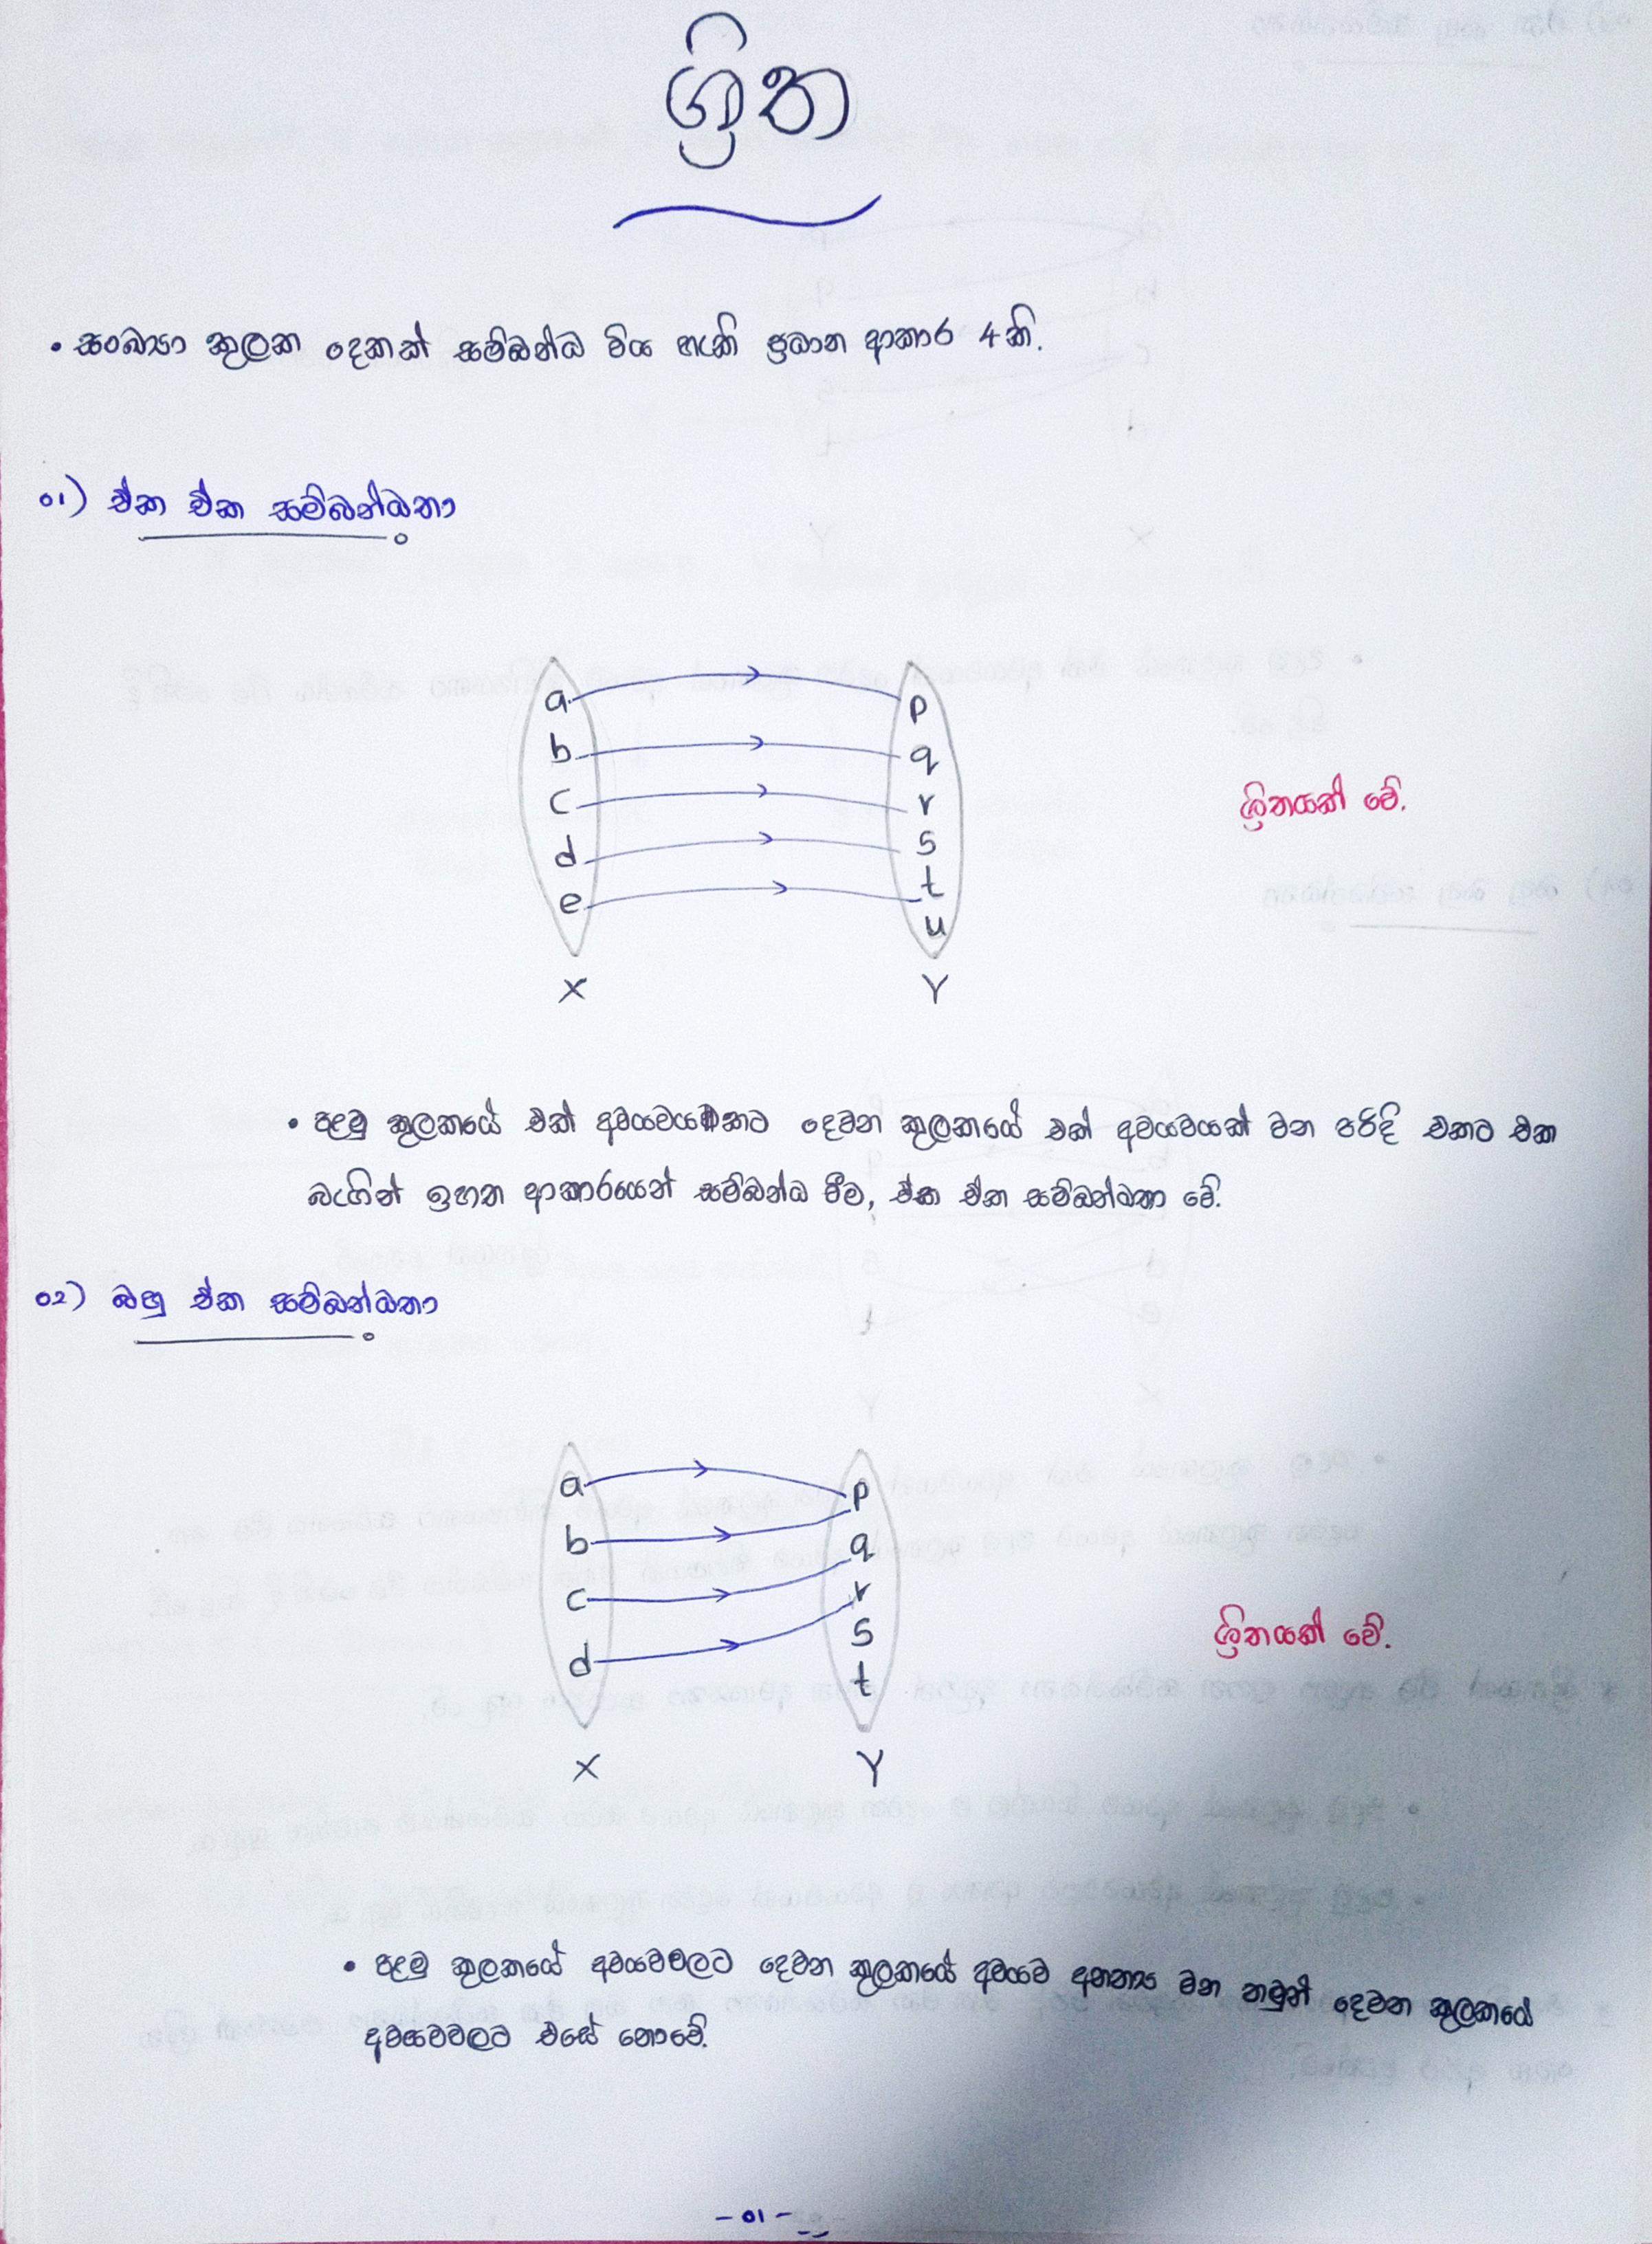 ශ්‍රිත
• සංඛ්‍යා කුලක දෙකක් සම්බන්ධ විය හැකි ප්‍රධාන ආකාර 4කි.
01) ඒක ඒක සම්බන්ධතා
a p
b q
c r
d s
e t
u
X Y
ශ්‍රිතයක් වේ.
• පළමු කුලකයේ එක් අවයවයකට දෙවන කුලකයේ එක් අවයවයක් වන පරිදි එකට එක
බැගින් ඉහත ආකාරයෙන් සම්බන්ධ වීම, ඒක ඒක සම්බන්ධතා වේ.
02) බහු ඒක සම්බන්ධතා
a p
b q
c r
d s
t
X Y
ශ්‍රිතයක් වේ.
• පළමු කුලකයේ අවයවවලට දෙවන කුලකයේ අවයව අනන්‍ය වන නමුත් දෙවන කුලකයේ
අවයවවලට එසේ නොවේ.
- 01 -